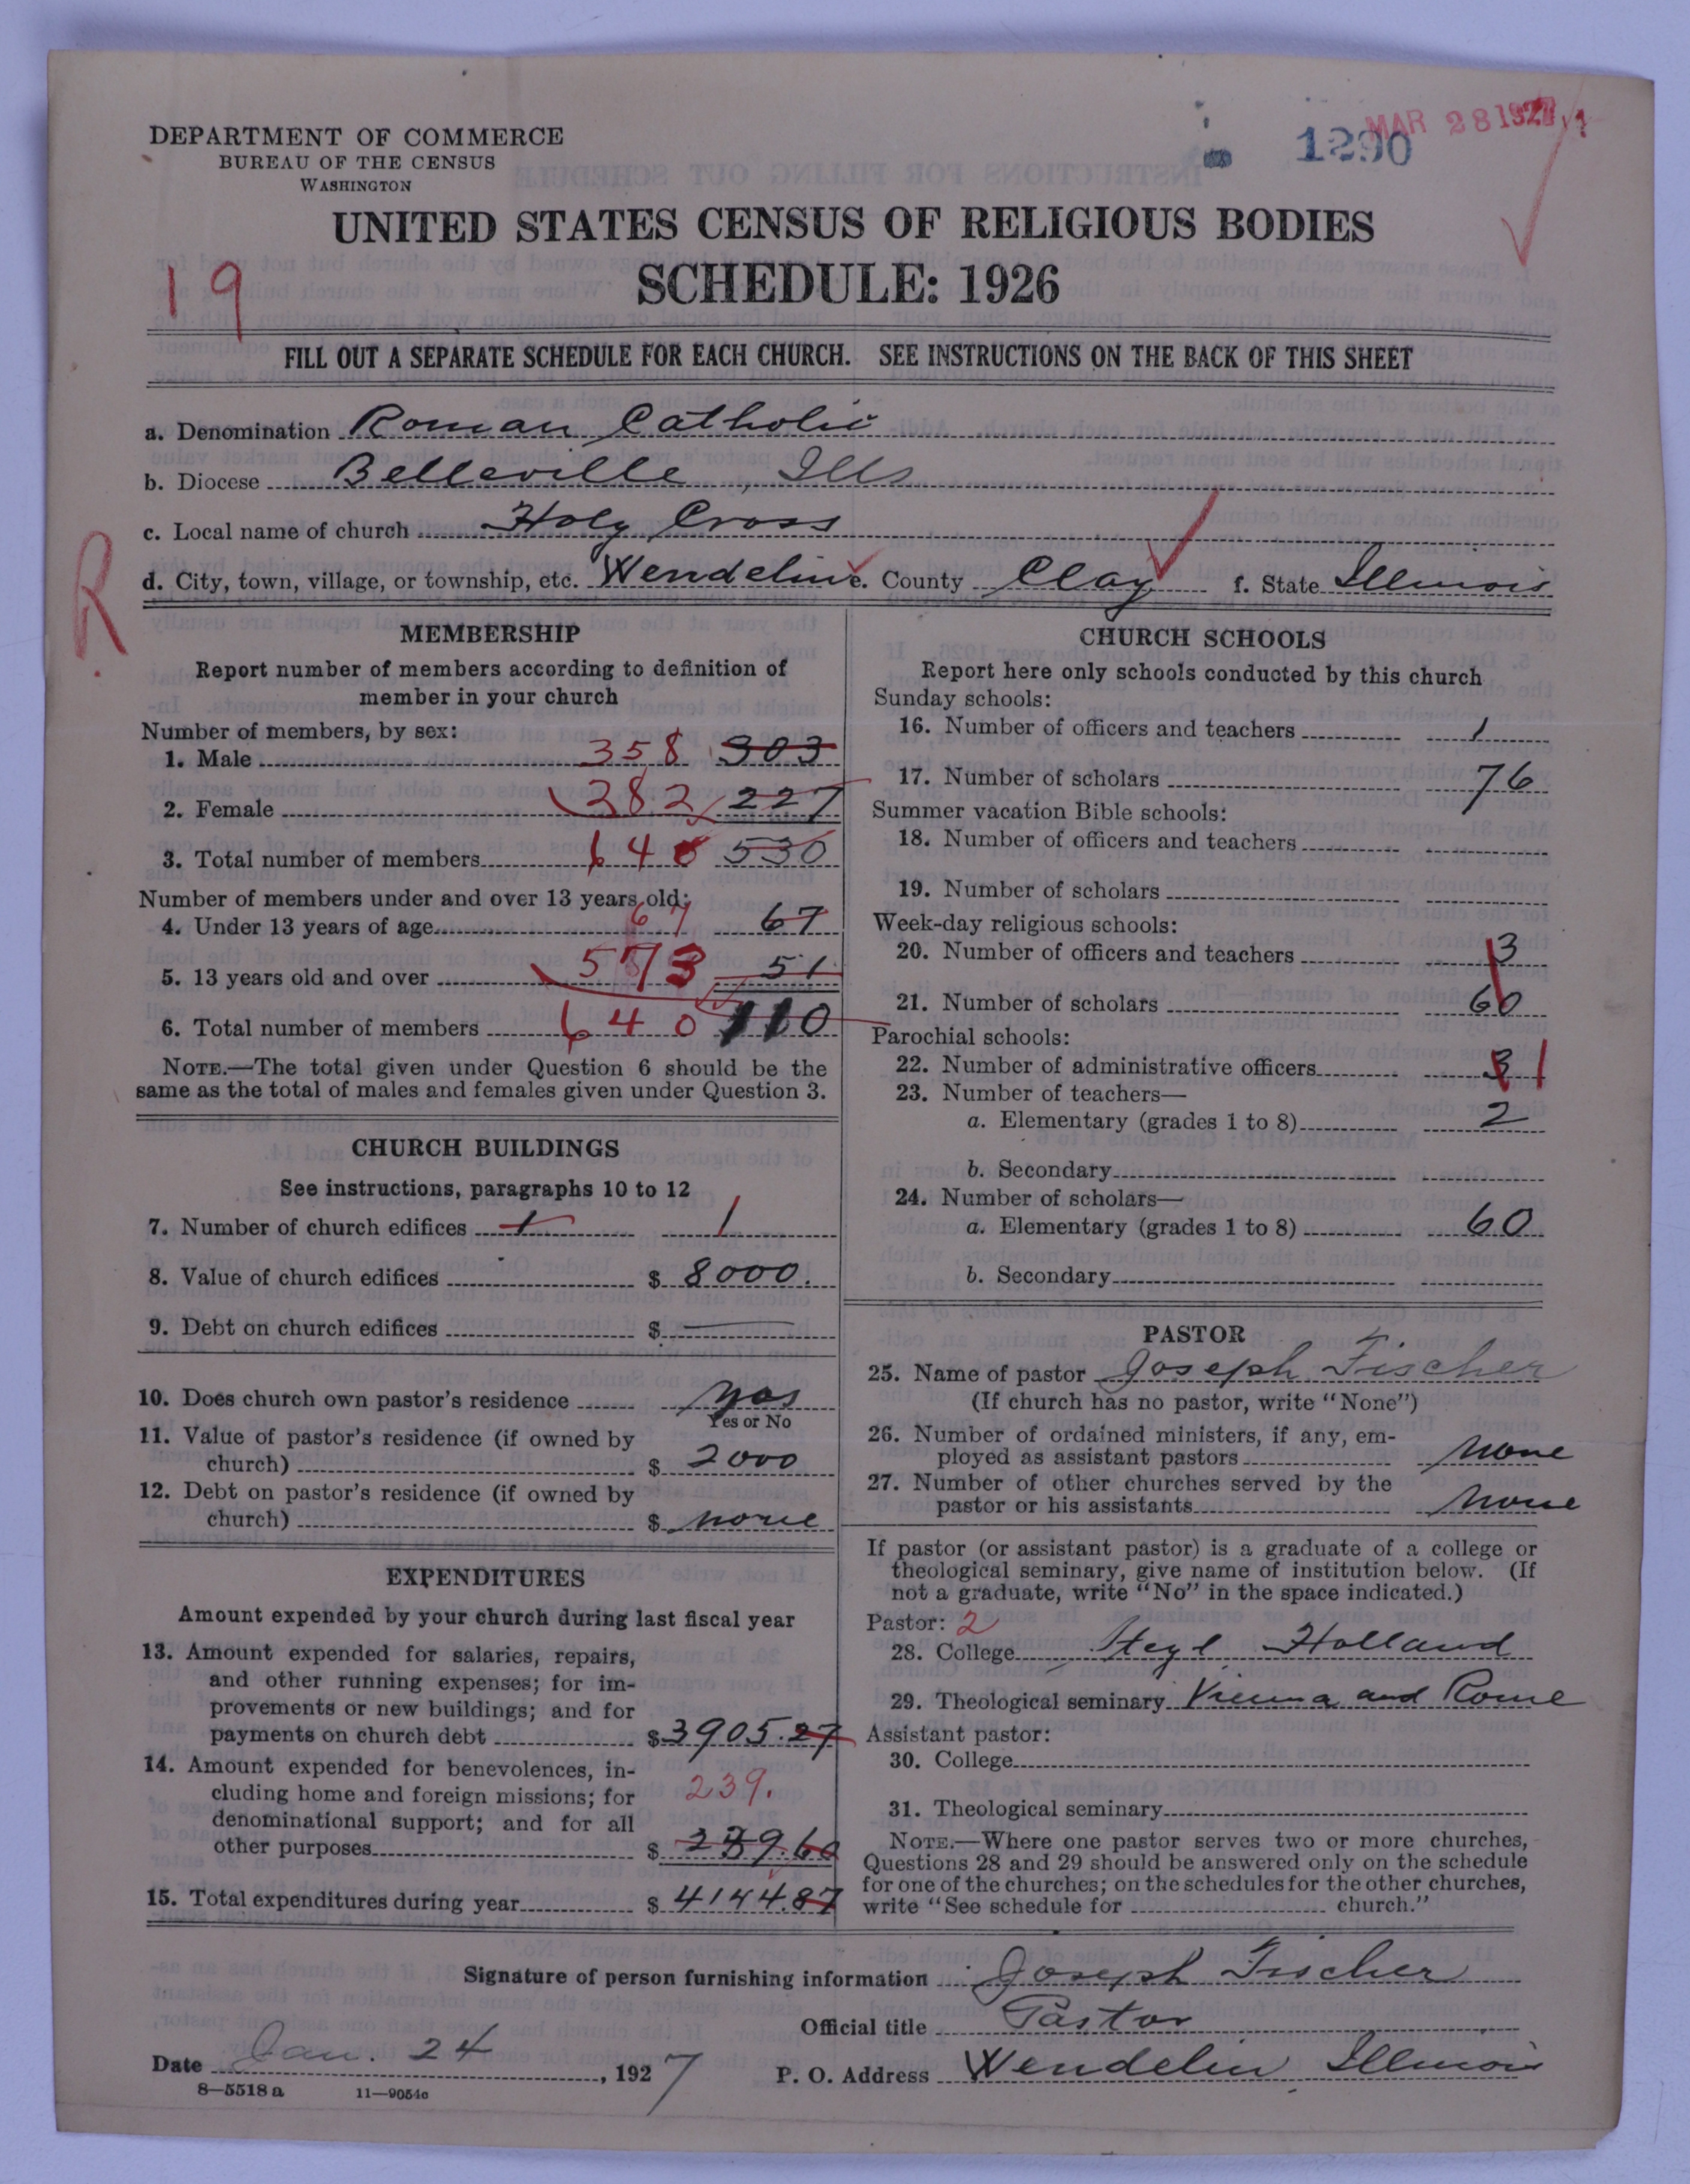 MAR 28 1927
1290
DEPARTMENT OF COMMERCE
BUREAU OF THE CENSUS
WASHINGTON
UNITED STATES CENSUS OF RELIGIOUS BODIES
19
SCHEDULE: 1926
FILL OUT A SEPARATE SCHEDULE FOR EACH CHURCH. SEE INSTRUCTIONS ON THE BACK OF THIS SHEET
a. Denomination Roman Catholic
b. Diocese Belleville, Ills
c. Local name of church Holy Cross
R
d. City, town, village, or township, etc. Wendelin e. County Clay f. State Illinois
MEMBERSHIP
Report number of members according to definition of
member in your church
Number of members, by sex:
1. Male 358 303
2. Female 282 227
3. Total number of members 640 530
Number of members under and over 13 years old:
4. Under 13 years of age 67 67
5. 13 years old and over 573 51
6. Total number of members 640 110
NOTE.—The total given under Question 6 should be the
same as the total of males and females given under Question 3.
CHURCH BUILDINGS
See instructions, paragraphs 10 to 12
7. Number of church edifices 1 1
8. Value of church edifices $ 8000.
9. Debt on church edifices $ —
10. Does church own pastor's residence yes
Yes or No
11. Value of pastor's residence (if owned by
church) $ 2000
12. Debt on pastor's residence (if owned by
church) $ none
EXPENDITURES
Amount expended by your church during last fiscal year
13. Amount expended for salaries, repairs,
and other running expenses; for im-
provements or new buildings; and for
payments on church debt $ 3905.27
14. Amount expended for benevolences, in-
cluding home and foreign missions; for 239.
denominational support; and for all
other purposes $ 239.60
15. Total expenditures during year $ 4144.87
CHURCH SCHOOLS
Report here only schools conducted by this church
Sunday schools:
16. Number of officers and teachers 1
17. Number of scholars 76
Summer vacation Bible schools:
18. Number of officers and teachers
19. Number of scholars
Week-day religious schools:
20. Number of officers and teachers 3
21. Number of scholars 60
Parochial schools:
22. Number of administrative officers 3 1
23. Number of teachers—
a. Elementary (grades 1 to 8) 2
b. Secondary
24. Number of scholars—
a. Elementary (grades 1 to 8) 60
b. Secondary
PASTOR
25. Name of pastor Joseph Fischer
(If church has no pastor, write "None")
26. Number of ordained ministers, if any, em-
ployed as assistant pastors none
27. Number of other churches served by the
pastor or his assistants none
If pastor (or assistant pastor) is a graduate of a college or
theological seminary, give name of institution below. (If
not a graduate, write "No" in the space indicated.)
Pastor: 2
28. College Steyl, Holland
29. Theological seminary Vienna and Rome
Assistant pastor:
30. College
31. Theological seminary
NOTE.—Where one pastor serves two or more churches,
Questions 28 and 29 should be answered only on the schedule
for one of the churches; on the schedules for the other churches,
write "See schedule for church."
Signature of person furnishing information Joseph Fischer
Official title Pastor
Date Jan. 24, 1927 P. O. Address Wendelin, Illinois
8—5518 a 11—9054c